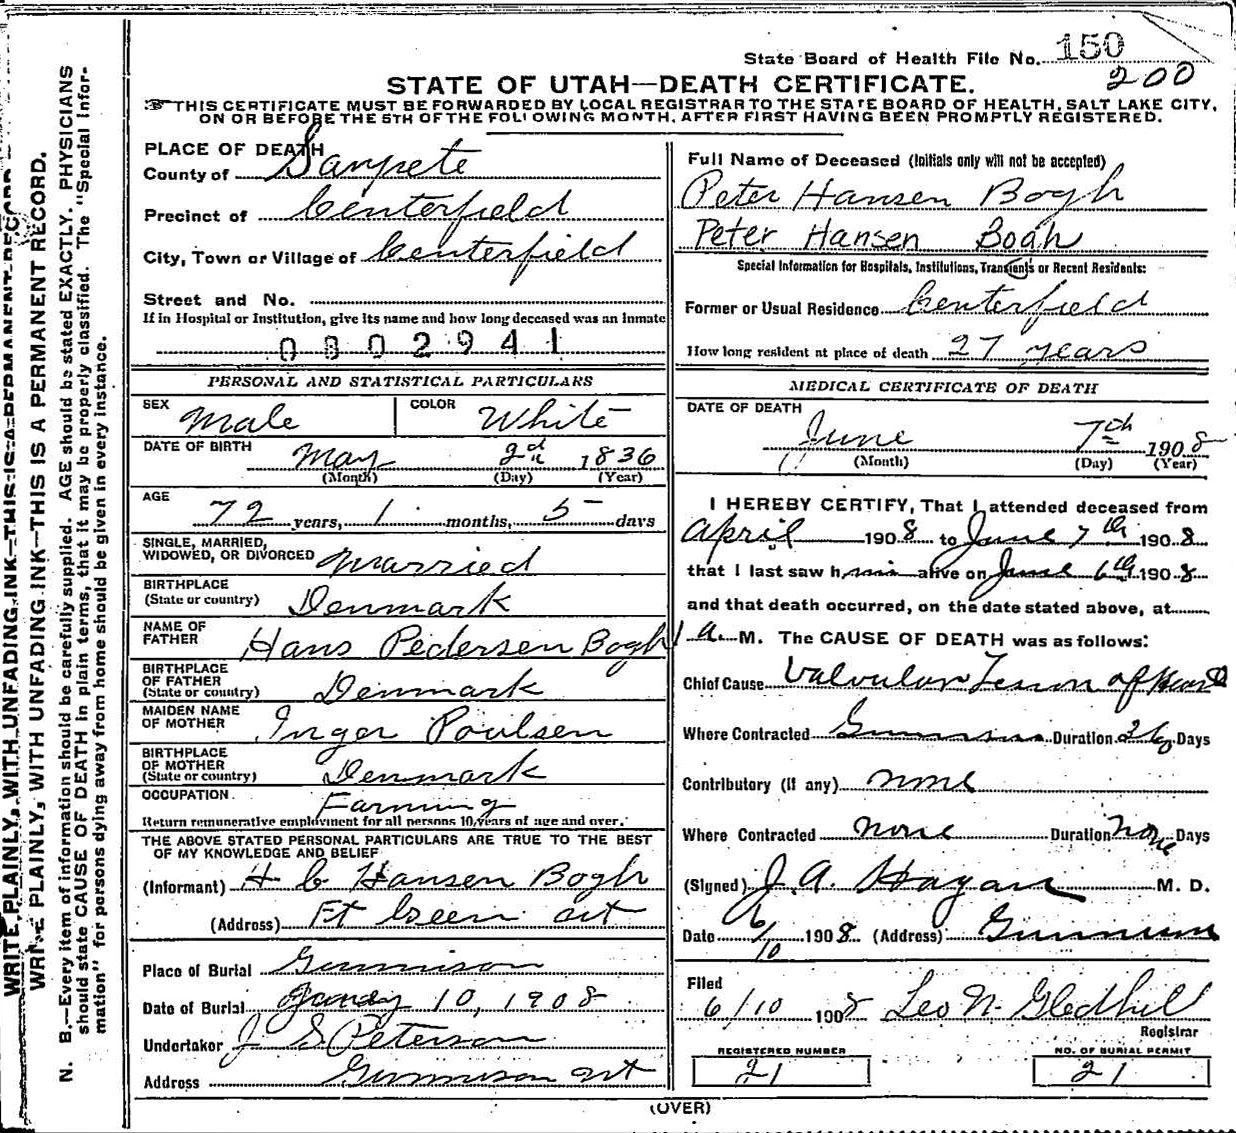 State Board of Health File No. 150
200
STATE OF UTAH—DEATH CERTIFICATE.
THIS CERTIFICATE MUST BE FORWARDED BY LOCAL REGISTRAR TO THE STATE BOARD OF HEALTH, SALT LAKE CITY,
ON OR BEFORE THE 5TH OF THE FOLLOWING MONTH, AFTER FIRST HAVING BEEN PROMPTLY REGISTERED.
WRITE PLAINLY, WITH UNFADING INK—THIS IS A PERMANENT RECORD.
WRITE PLAINLY, WITH UNFADING INK—THIS IS A PERMANENT RECORD.
N. B.—Every item of information should be carefully supplied. AGE should be stated EXACTLY. PHYSICIANS
should state CAUSE OF DEATH in plain terms, that it may be properly classified. The "Special Infor-
mation" for persons dying away from home should be given in every instance.
PLACE OF DEATH
County of Sanpete
Precinct of Centerfield
City, Town or Village of Centerfield
Street and No.
If in Hospital or Institution, give its name and how long deceased was an inmate
0802941
PERSONAL AND STATISTICAL PARTICULARS
SEX Male COLOR White
DATE OF BIRTH May 2nd 1836
(Month) (Day) (Year)
AGE 72 years, 1 months, 5 days
SINGLE, MARRIED,
WIDOWED, OR DIVORCED Married
BIRTHPLACE
(State or country) Denmark
NAME OF
FATHER Hans Pedersen Bogh
BIRTHPLACE
OF FATHER
(State or country) Denmark
MAIDEN NAME
OF MOTHER Inger Poulsen
BIRTHPLACE
OF MOTHER
(State or country) Denmark
OCCUPATION Farming
Return remunerative employment for all persons 10 years of age and over.
THE ABOVE STATED PERSONAL PARTICULARS ARE TRUE TO THE BEST
OF MY KNOWLEDGE AND BELIEF
(Informant) H C Hansen Bogh
(Address) Ft Green ut
Place of Burial Gunnison
Date of Burial 10, 1908
Undertaker J S Peterson
Address Gunnison ut
Full Name of Deceased (Initials only will not be accepted)
Peter Hansen Bogh
Peter Hansen Bogh
Special Information for Hospitals, Institutions, Transients or Recent Residents:
Former or Usual Residence Centerfield
How long resident at place of death 27 years
MEDICAL CERTIFICATE OF DEATH
DATE OF DEATH
June 7th 1908
(Month) (Day) (Year)
I HEREBY CERTIFY, That I attended deceased from
April 1908 to June 7th 1908
that I last saw him alive on June 6th 1908
and that death occurred, on the date stated above, at
1 a. M. The CAUSE OF DEATH was as follows:
Chief Cause Valvular Lesion of Heart
Where Contracted Gunnison Duration Days
Contributory (if any) none
Where Contracted none Duration none Days
(Signed) J. A. Hagan M. D.
Date 6/10 1908 (Address) Gunnison
Filed
6/10 1908 Leo N. Gledhill
Registrar
REGISTERED NUMBER
21
NO. OF BURIAL PERMIT
21
(OVER)